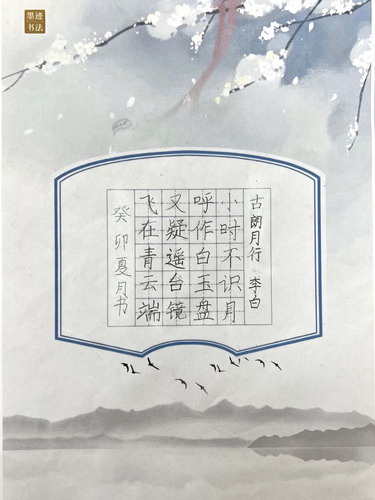 墨迹
书法
古朗月行 李白
小时不识月
呼作白玉盘
又疑遥台镜
飞在青云端
癸卯夏月书